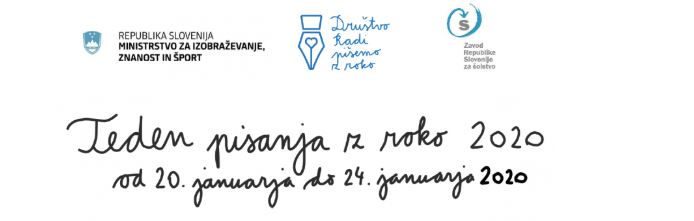 REPUBLIKA SLOVENIJA
MINISTRSTVO ZA IZOBRAŽEVANJE,
ZNANOST IN ŠPORT
Društvo
Radi
pišemo
z roko
Š
Zavod
Republike
Slovenije
za šolstvo
Teden pisanja z roko 2020
od 20. januarja do 24. januarja 2020